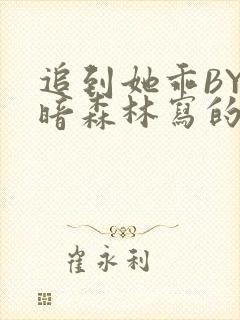 追到她乖BY
暗森林寫的
崔永利